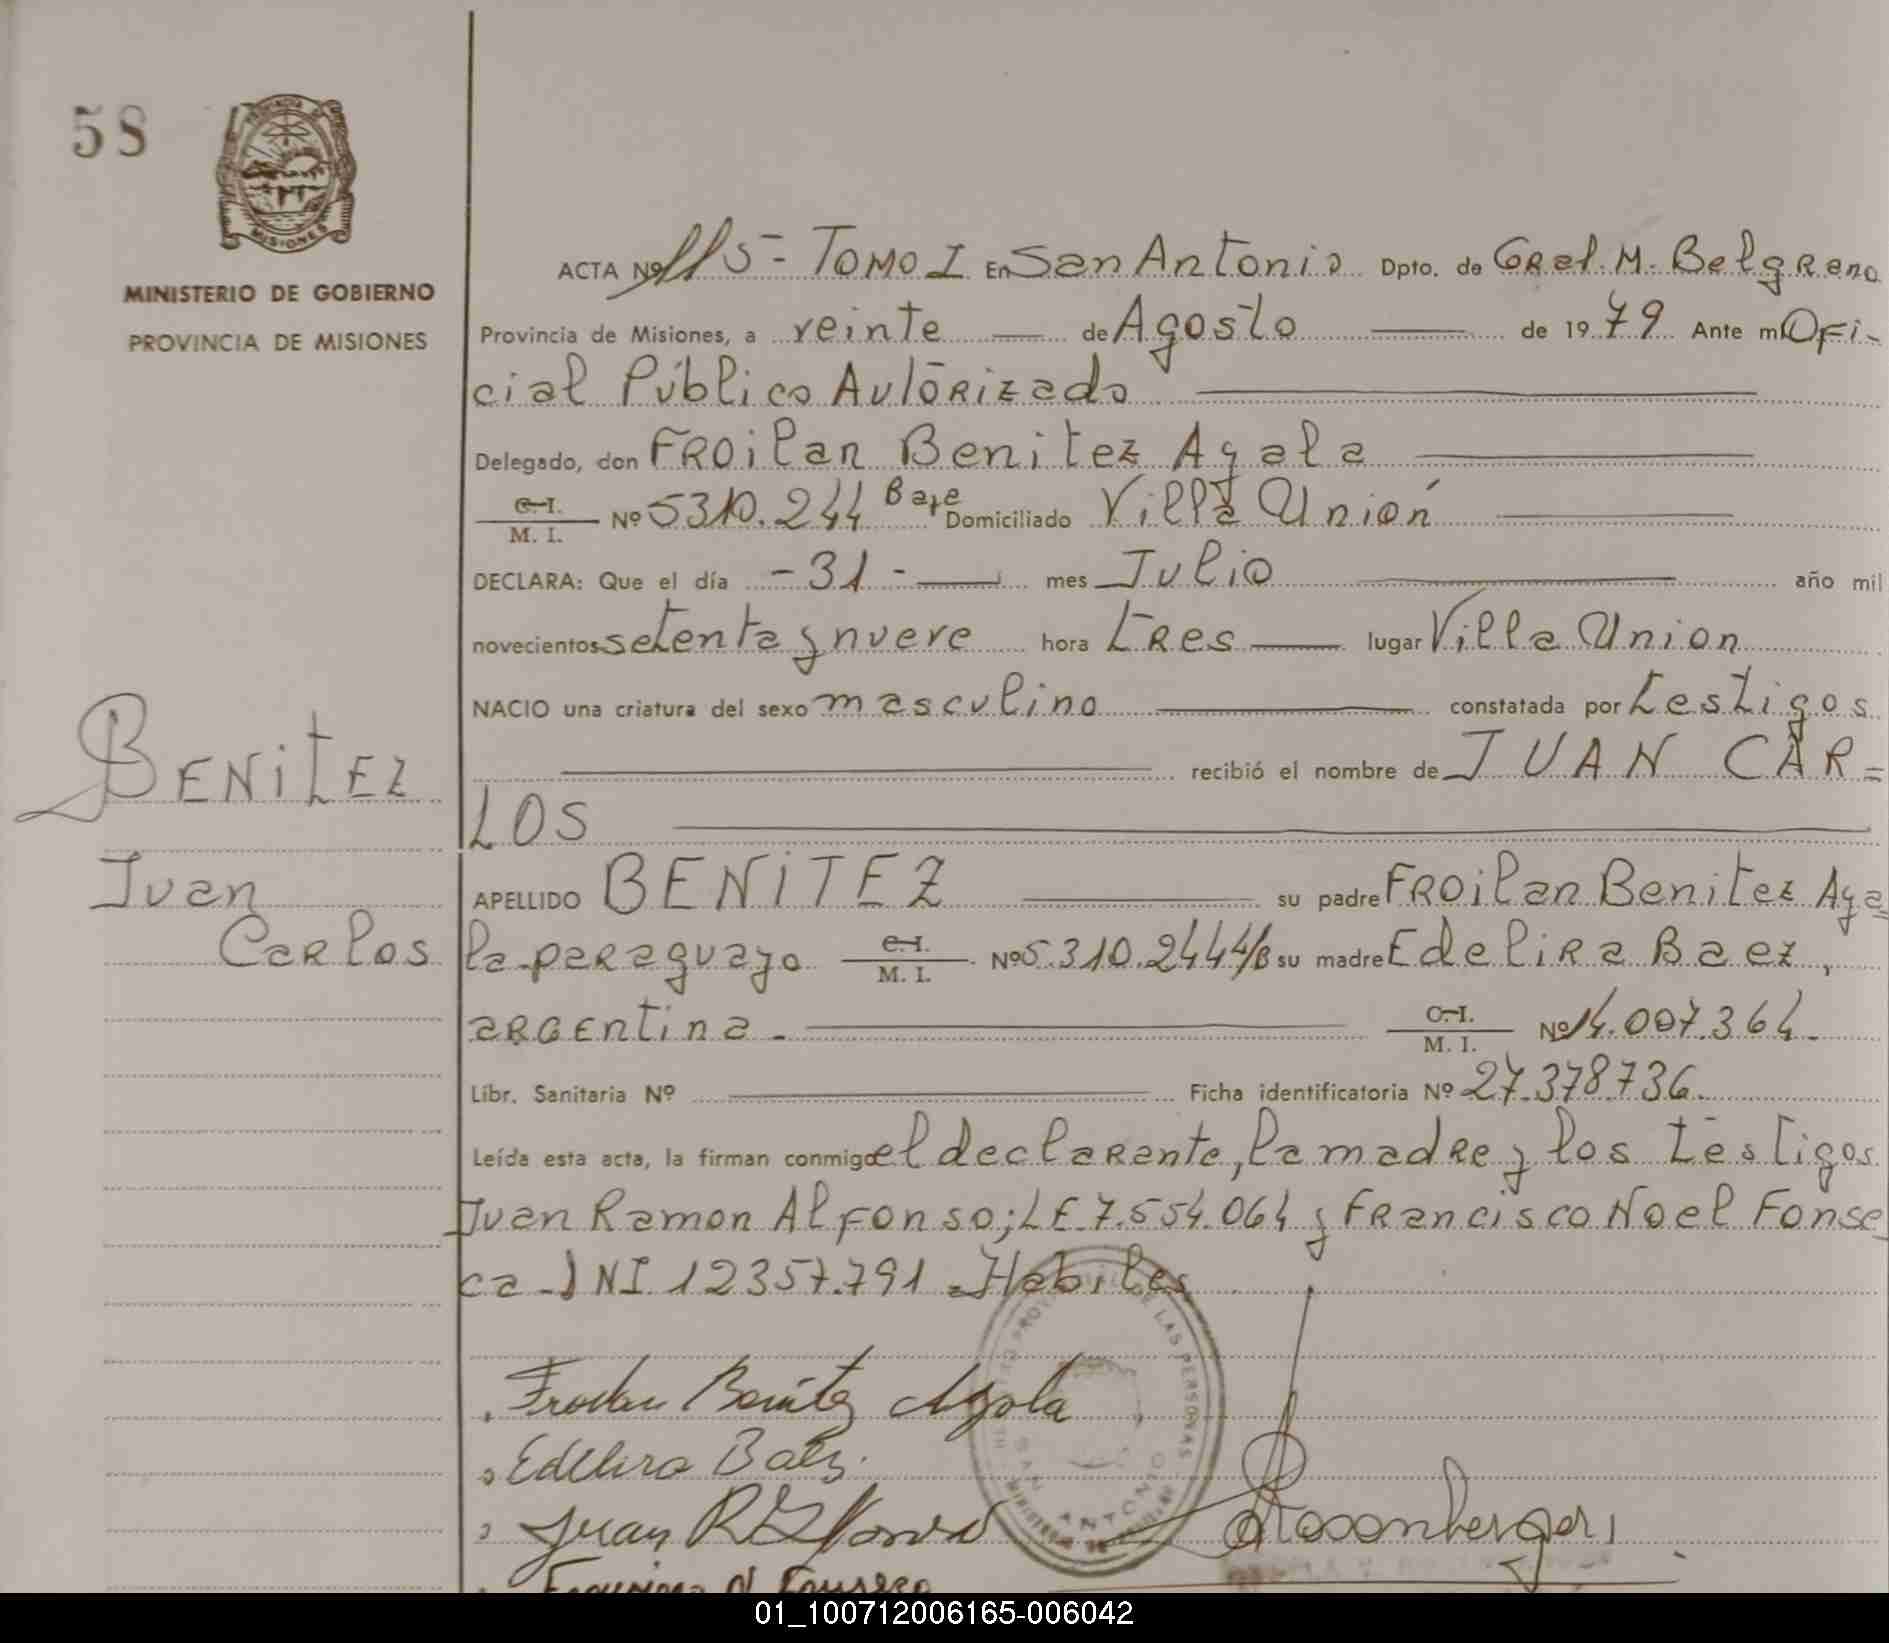 58
MISIONES
MINISTERIO DE GOBIERNO
PROVINCIA DE MISIONES
ACTA Nº 115 = TOMO I En San Antonio Dpto. de Gral. M. Belgrano
Provincia de Misiones, a veinte de Agosto de 1979 Ante mi Ofi-
cial Público Autorizado
Delegado, don Froilan Benitez Ayala
C. I. / M. I. Nº 5310.244 Baje Domiciliado Villa Unión
DECLARA: Que el día -31- mes Julio año mil
novecientos setenta y nueve hora tres lugar Villa Union
NACIO una criatura del sexo masculino constatada por testigos
recibió el nombre de JUAN CAR=
LOS
BENITEZ
Juan
Carlos
APELLIDO BENITEZ su padre Froilan Benitez Aya
la paraguayo C. I. / M. I. Nº 5.310.244 /B su madre Edelira Baez,
argentina.- C. I. / M. I. Nº 14.007.364.
Libr. Sanitaria Nº Ficha identificatoria Nº 27.378.736.
Leída esta acta, la firman conmigo el declarante, la madre y los testigos
Juan Ramon Alfonso; LE 7.554.064 y Francisco Noel Fonse
ca - DNI 12357.791 - Habiles
Froilan Benitez Ayala
Edelira Baez.
Juan R Alfonso
Rosenberger
SAN ANTONIO
DE LAS PERSONAS
01_100712006165-006042